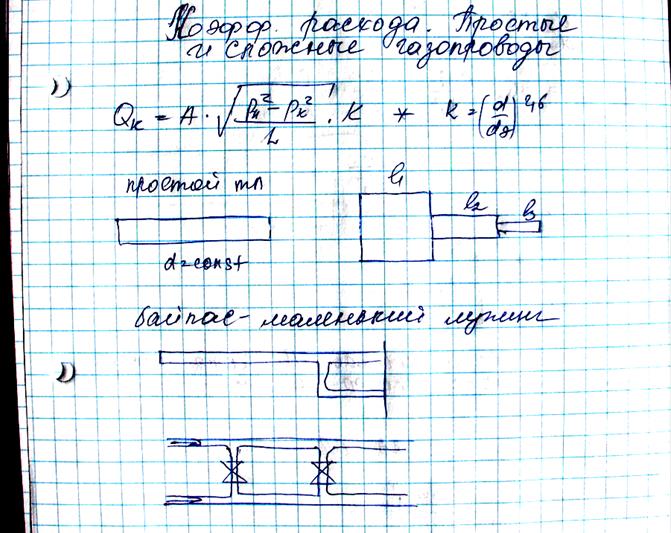 Коэфф. расхода. Простые
и сложные газопроводы
1)
Qк = A · √((Pн² - Pк²)/L) · K * K = (d/dэ)^2,6
простой тп
d = const
l1
l2
l3
байпас - маленький лупинг
2)